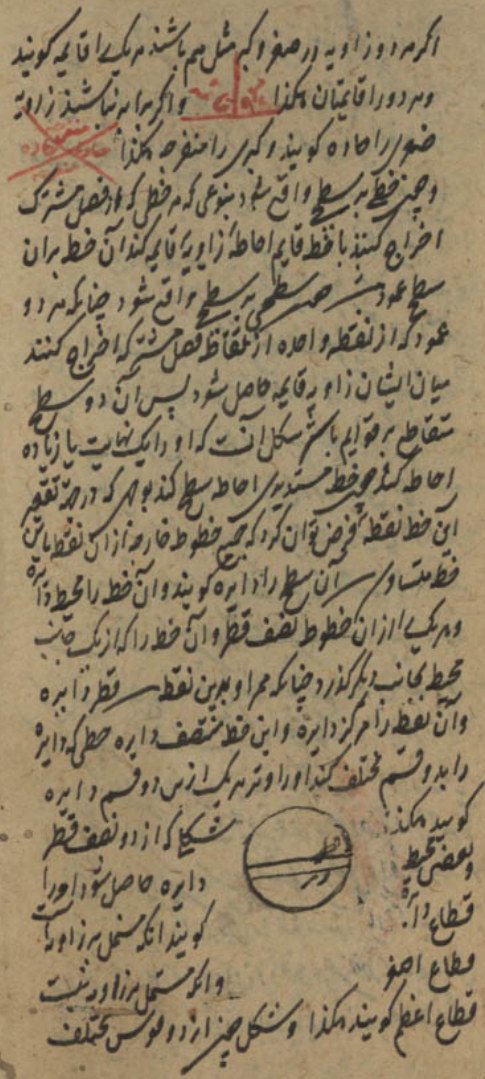 اگر هر دو زاویه در صغر و کبر مثل هم باشند هر یکی را قایمه گویند
و هر دو را قایمتان هکذا و اگر برابر نباشند زاویه
صغری را حاده گویند و کبری را منفرجه هکذا
و چون خطی بر سطح واقع شود بنوعی که هر خطی که از فصل مشترک
اخراج کنند با خط قایم احاطه زاویه قایمه کند آن خط بر آن
سطح عمود است چون سطحی بر سطح واقع شود چنانکه هر دو
عمود که از نقطه واحده از نقاط فصل مشترک اخراج کنند
میان ایشان زاویه قایمه حاصل شود پس آن دو سطح
متقاطع بر قوایم باشد شکل آنست که او را یک نهایت یا زیاده
احاطه کند چون خط مستدیری احاطه سطح کند بوجهی که در جهة تقعیر
آن خط نقطه فرض توان کرد که جمیع خطوط خارجه از آن نقطه باین
خط متساوی آن سطح را دایره گویند و آن خط را محیط دایره
و هر یکی را از آن خطوط نصف قطر و آن خط را که از یک جانب
محیط بجانب دیگر گذرد چنانکه ممر او بدین نقطه قطر دایره
و آن نقطه را مرکز دایره و این خط منصف دایره خطی که دایره
را بدو قسم مختلف کند او را وتر هر یک ازین دو قسم دایره
گویند هکذا شکلی که از دو نصف قطر
و بعضی محیط دایره حاصل شود او را
قطر
وتر
قطاع دایره گویند آنکه مشتمل بر زاویه است
قطاع اصغر و آنکه مشتمل بر زاویه نیست
قطاع اعظم گویند هکذا و شکل چون از دو قوس مختلف